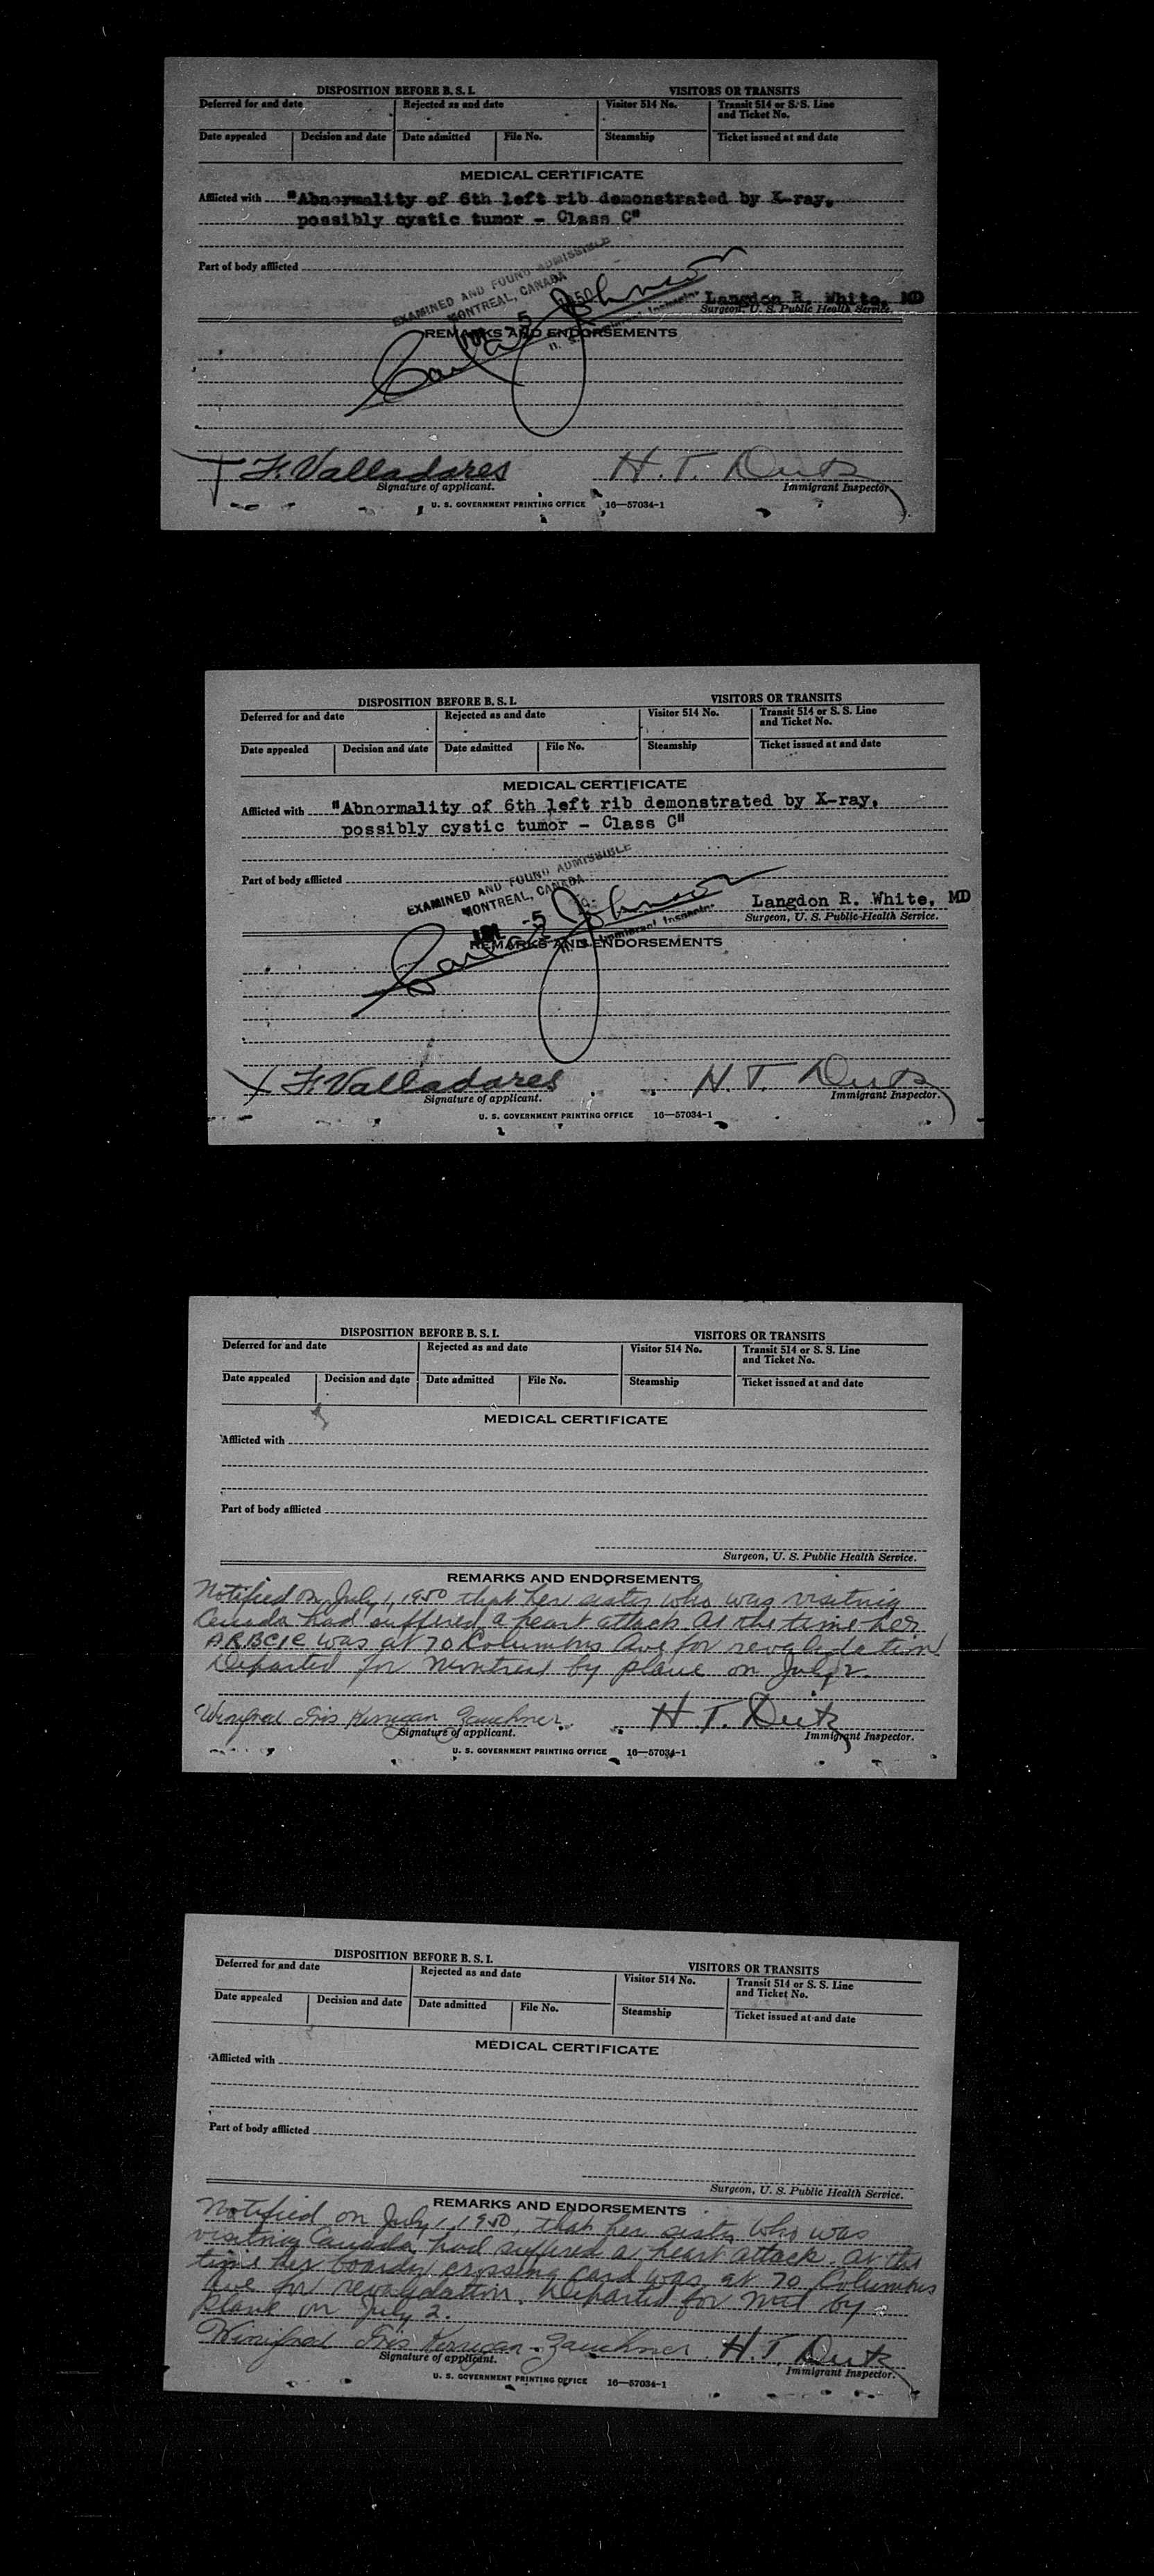 DISPOSITION BEFORE B. S. I. VISITORS OR TRANSITS
Deferred for and date Rejected as and date Visitor 514 No. Transit 514 or S. S. Line and Ticket No.
Date appealed Decision and date Date admitted File No. Steamship Ticket issued at and date
MEDICAL CERTIFICATE
Afflicted with "Abnormality of 6th left rib demonstrated by X-ray,
possibly cystic tumor - Class C"
Part of body afflicted
EXAMINED AND FOUND ADMISSIBLE
MONTREAL, CANADA
-5 1950
Johnson
U. S. Immigrant Inspector
Langdon R. White, MD
Surgeon, U. S. Public Health Service.
REMARKS AND ENDORSEMENTS
F. Valladares H. T.
Signature of applicant. Immigrant Inspector.
U. S. GOVERNMENT PRINTING OFFICE 16—57034-1
DISPOSITION BEFORE B. S. I. VISITORS OR TRANSITS
Deferred for and date Rejected as and date Visitor 514 No. Transit 514 or S. S. Line and Ticket No.
Date appealed Decision and date Date admitted File No. Steamship Ticket issued at and date
MEDICAL CERTIFICATE
Afflicted with "Abnormality of 6th left rib demonstrated by X-ray,
possibly cystic tumor - Class C"
Part of body afflicted
EXAMINED AND FOUND ADMISSIBLE
MONTREAL, CANADA
-5
Johnson
Immigrant Inspector
Langdon R. White, MD
Surgeon, U. S. Public Health Service.
REMARKS AND ENDORSEMENTS
F. Valladares H. T.
Signature of applicant. Immigrant Inspector.
U. S. GOVERNMENT PRINTING OFFICE 16—57034-1
DISPOSITION BEFORE B. S. I. VISITORS OR TRANSITS
Deferred for and date Rejected as and date Visitor 514 No. Transit 514 or S. S. Line and Ticket No.
Date appealed Decision and date Date admitted File No. Steamship Ticket issued at and date
MEDICAL CERTIFICATE
Afflicted with
Part of body afflicted
Surgeon, U. S. Public Health Service.
REMARKS AND ENDORSEMENTS
Notified on July 1, 1950 that her sister who was visiting
Canada had suffered a heart attack at the time her
was at 70 Columbus Ave for revalidation
Departed for Montreal by plane on July 2.
Winifred Iris Kerrigan H. T.
Signature of applicant. Immigrant Inspector.
U. S. GOVERNMENT PRINTING OFFICE 16—57034-1
DISPOSITION BEFORE B. S. I. VISITORS OR TRANSITS
Deferred for and date Rejected as and date Visitor 514 No. Transit 514 or S. S. Line and Ticket No.
Date appealed Decision and date Date admitted File No. Steamship Ticket issued at and date
MEDICAL CERTIFICATE
Afflicted with
Part of body afflicted
Surgeon, U. S. Public Health Service.
REMARKS AND ENDORSEMENTS
Notified on July 1, 1950, that her sister who was
visiting Canada had suffered a heart attack. At the
time her crossing card was at 70 Columbus
Ave for revalidation. Departed for Mtl by
plane on July 2.
Winifred Iris Kerrigan H. T.
Signature of applicant. Immigrant Inspector.
U. S. GOVERNMENT PRINTING OFFICE 16—57034-1